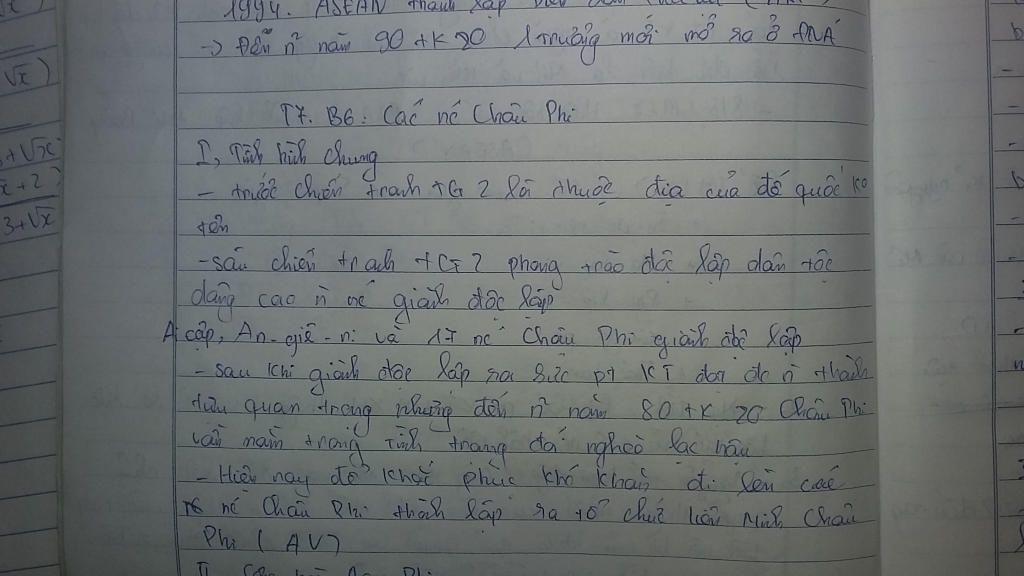 √x
√x)
3+√x
x+2
3+√x
1994. ASEAN thành lập
-> Đến n² năm 90 tk 20 1 trưởng mới mở ra ở ĐNÁ
T7. B6: Các nc Châu Phi
I, Tình hình chung
- trước chiến tranh TG 2 là thuộc địa của đế quốc
- sau chiến tranh TG 2 phong trào độc lập dân tộc
dâng cao n nc giành độc lập
Ai cập, An-giê-ni và 17 nc Châu Phi giành độc lập
- sau khi giành độc lập ra sức pt KT đạt đc n thành
tựu quan trọng nhưng đến n² năm 80 tk 20 Châu Phi
vẫn nằm trong tình trạng đói nghèo lạc hậu
- Hiện nay để khắc phục khó khăn đi lên các
nc Châu Phi thành lập ra tổ chức liên Minh Châu
Phi (AU)